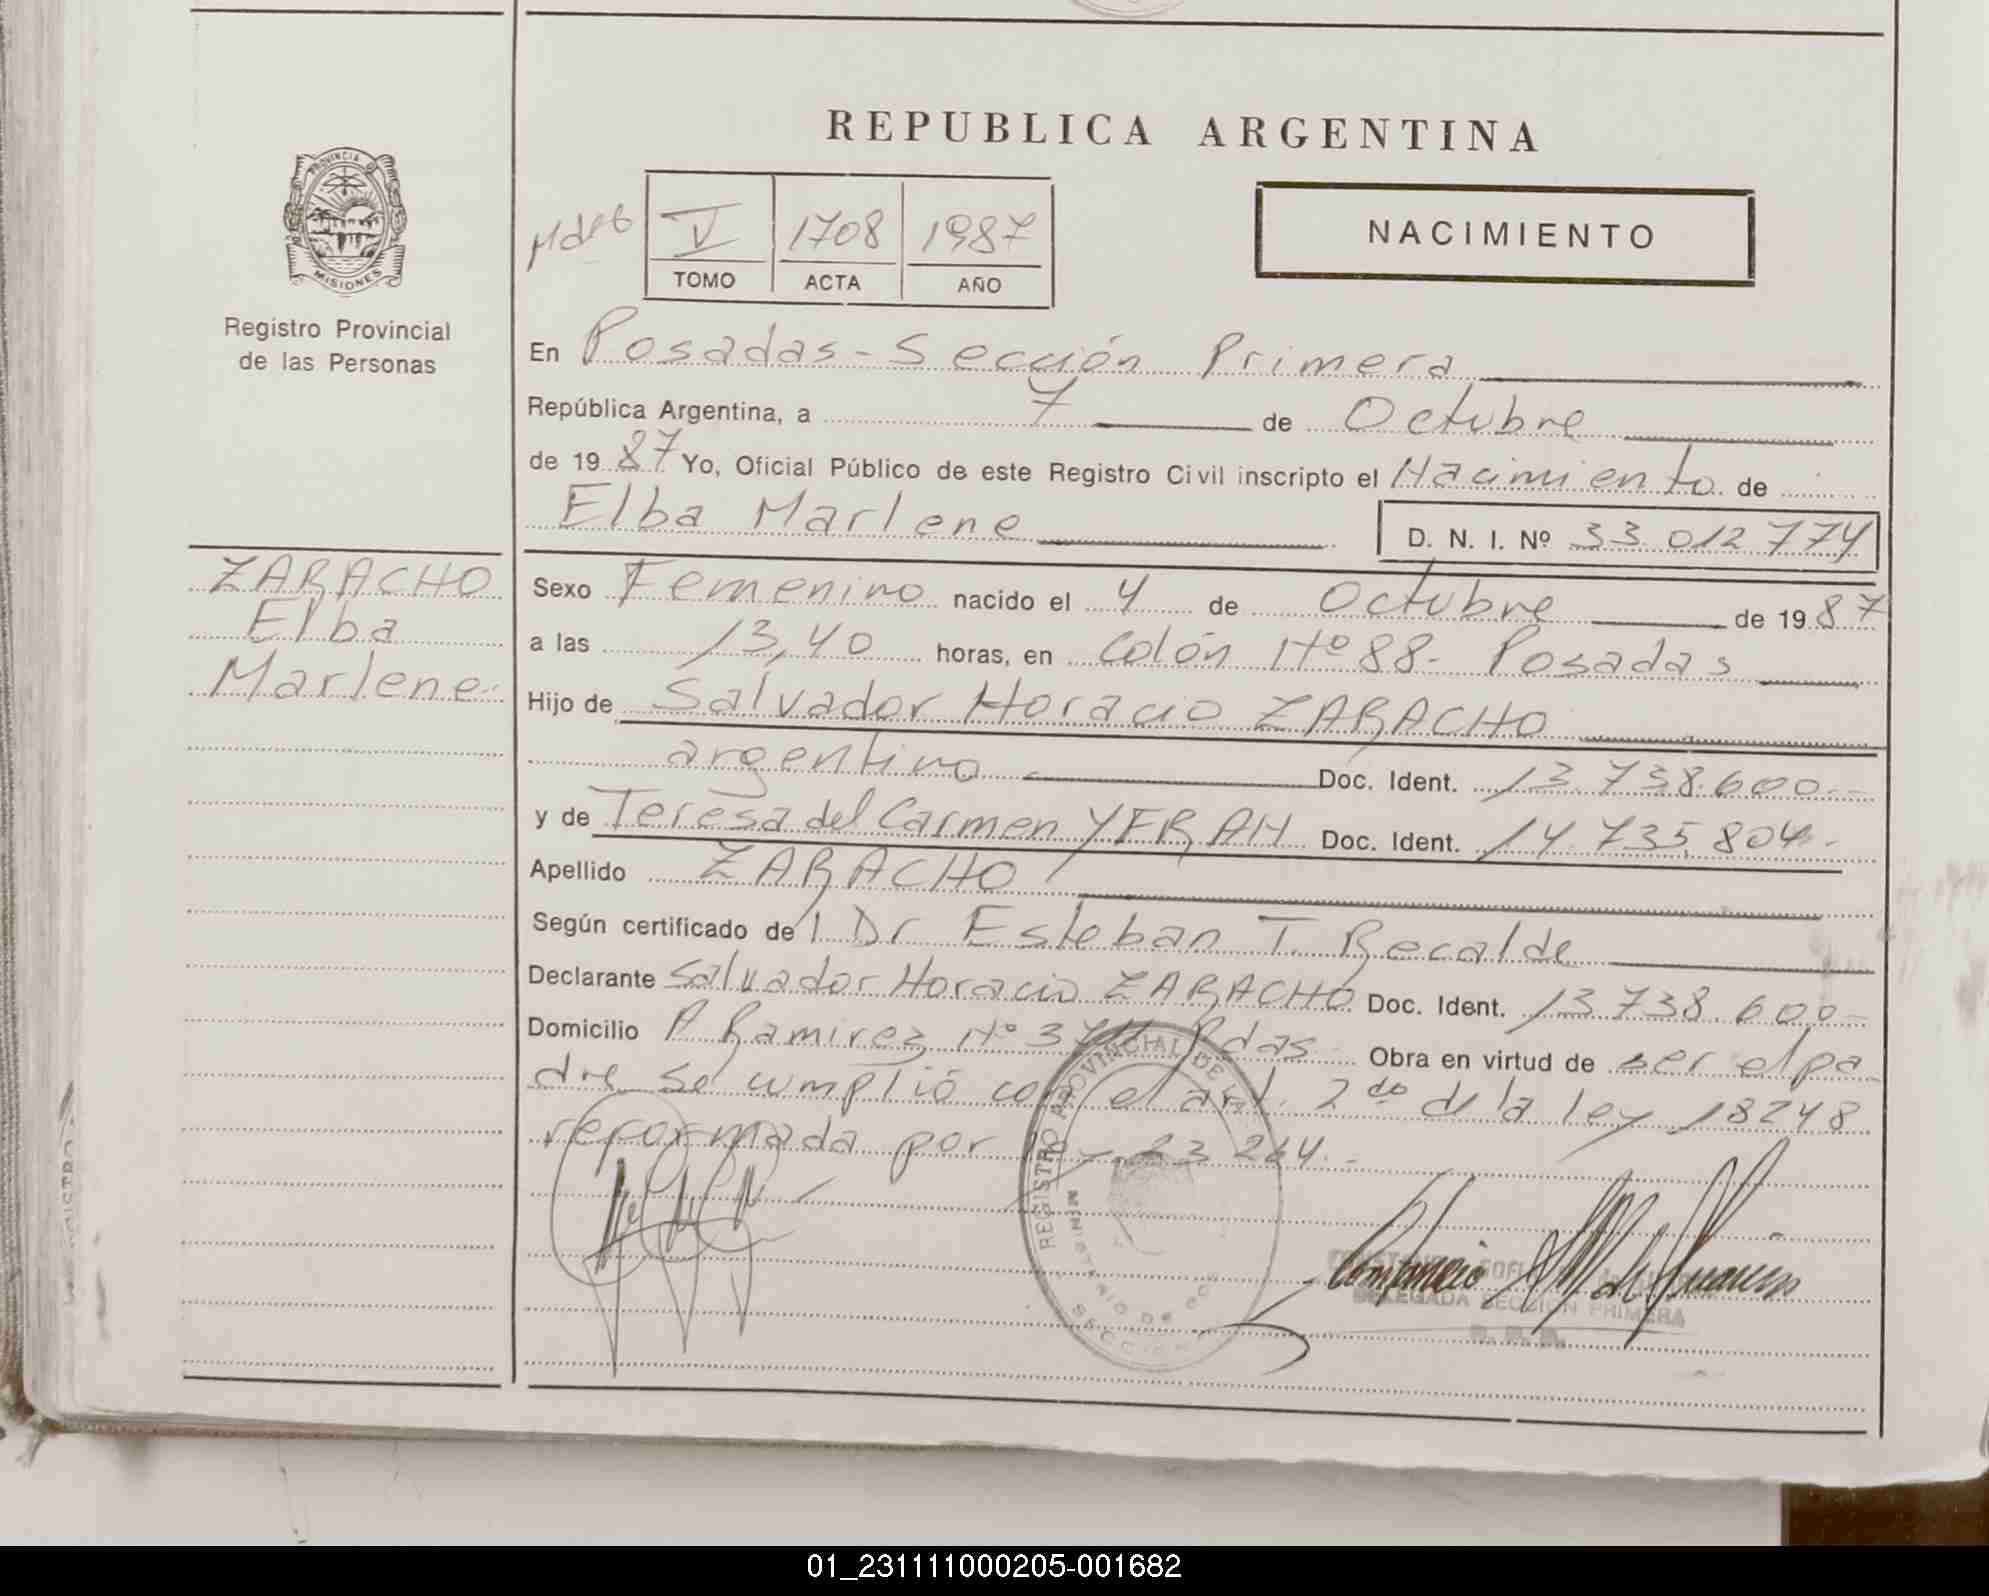 REPUBLICA ARGENTINA
PROVINCIA DE
MISIONES
Registro Provincial
de las Personas
V 1708 1987
TOMO ACTA AÑO
NACIMIENTO
En Posadas - Sección Primera
República Argentina, a 7 de Octubre
de 1987 Yo, Oficial Público de este Registro Civil inscripto el Nacimiento de
Elba Marlene D. N. I. Nº 33 012 774
ZARACHO
Elba
Marlene
Sexo Femenino nacido el 4 de Octubre de 1987
a las 13,40 horas, en Colón Nº 88- Posadas
Hijo de Salvador Horacio ZARACHO
argentino Doc. Ident. 13.738.600.-
y de Teresa del Carmen YFRAN Doc. Ident. 14.735.804.-
Apellido ZARACHO
Según certificado del Dr Esteban T. Recalde
Declarante Salvador Horacio ZARACHO Doc. Ident. 13 738.600-
Domicilio A Ramirez Nº Pdas Obra en virtud de ser el pa-
dre se cumplió con el art. 2do de la ley 18248
reformada por ley 23 264.-
REGISTRO PROVINCIAL DE
MINISTERIO DE
SECCION
DELEGADA SECCION PRIMERA
01_231111000205-001682